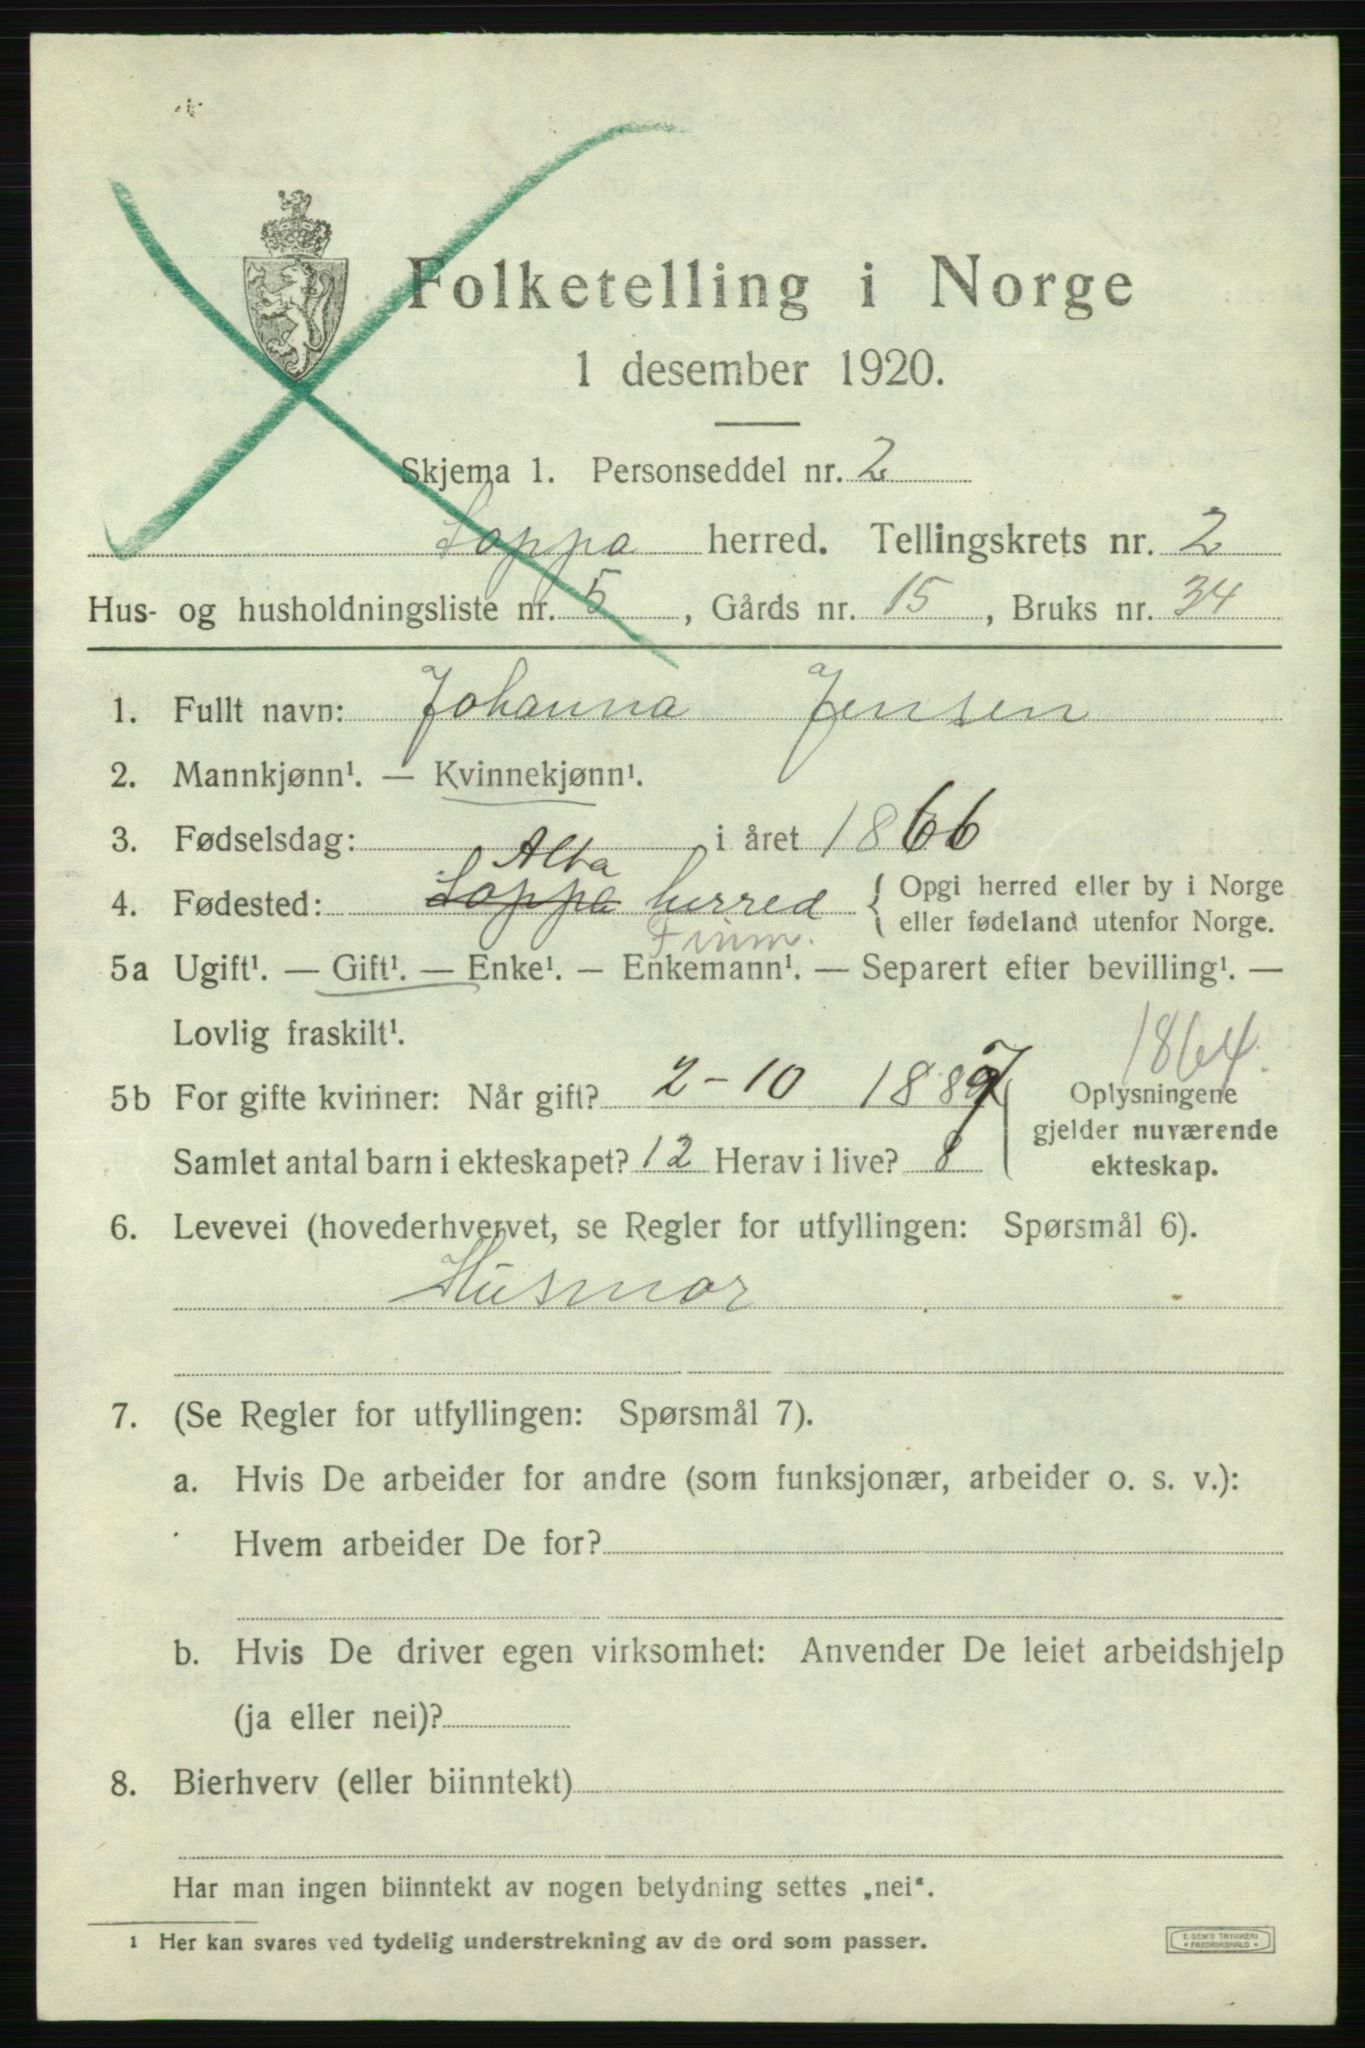 Folketelling i Norge
1 desember 1920.
Skjema 1. Personseddel nr. 2
Loppa herred. Tellingskrets nr. 2
Hus- og husholdningsliste nr. 5, Gårds nr. 15, Bruks nr. 34
1. Fullt navn: Johanna Jensen
2. Mannkjønn¹. — Kvinnekjønn¹.
3. Fødselsdag: i året 1866
Alta
4. Fødested: Loppa herred { Opgi herred eller by i Norge
eller fødeland utenfor Norge.
Finm.
5a Ugift¹. — Gift¹. — Enke¹. — Enkemann¹. — Separert efter bevilling¹. —
Lovlig fraskilt¹.
1864.
5b For gifte kvinner: Når gift? 2-10 1887
Oplysningene
gjelder nuværende
Samlet antal barn i ekteskapet? 12 Herav i live? 8
ekteskap.
6. Levevei (hovederhvervet, se Regler for utfyllingen: Spørsmål 6).
Husmor
7. (Se Regler for utfyllingen: Spørsmål 7).
a. Hvis De arbeider for andre (som funksjonær, arbeider o. s. v.):
Hvem arbeider De for?
b. Hvis De driver egen virksomhet: Anvender De leiet arbeidshjelp
(ja eller nei)?
8. Bierhverv (eller biinntekt)
Har man ingen biinntekt av nogen betydning settes „nei“.
¹ Her kan svares ved tydelig understrekning av de ord som passer.
E. SEM'S TRYKKERI
• FREDRIKSHALD •